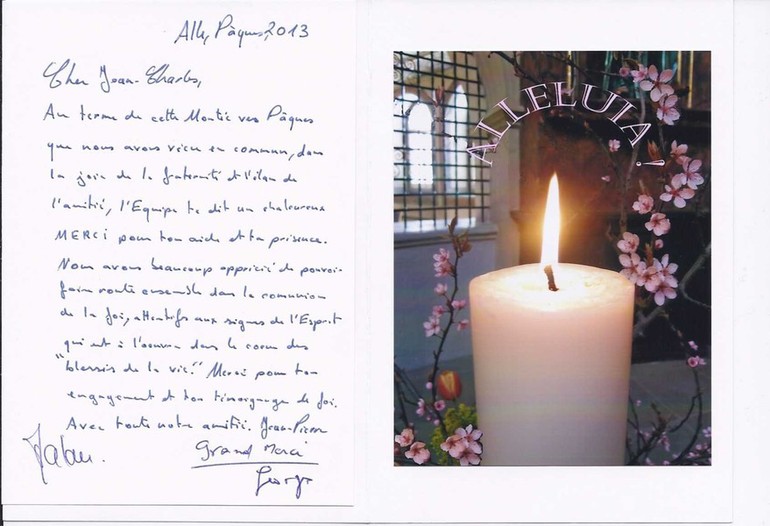 Alle, Pâques, 2013
Cher Jean-Charles,
Au terme de cette Montée vers Pâques
que nous avons vécu en commun, dans
la joie de la fraternité et l'élan de
l'amitié, l'Equipe te dit un chaleureux
MERCI pour ton aide et ta présence.
Nous avons beaucoup apprécié de pouvoir
faire route ensemble dans la communion
de la foi, attentifs aux signes de l'Esprit
qui est à l'oeuvre dans le coeur des
"blessés de la vie." Merci pour ton
engagement et ton témoignage de foi.
Avec toute notre amitié. Jean-Pierre
Grand Merci
George
ALLELUIA !